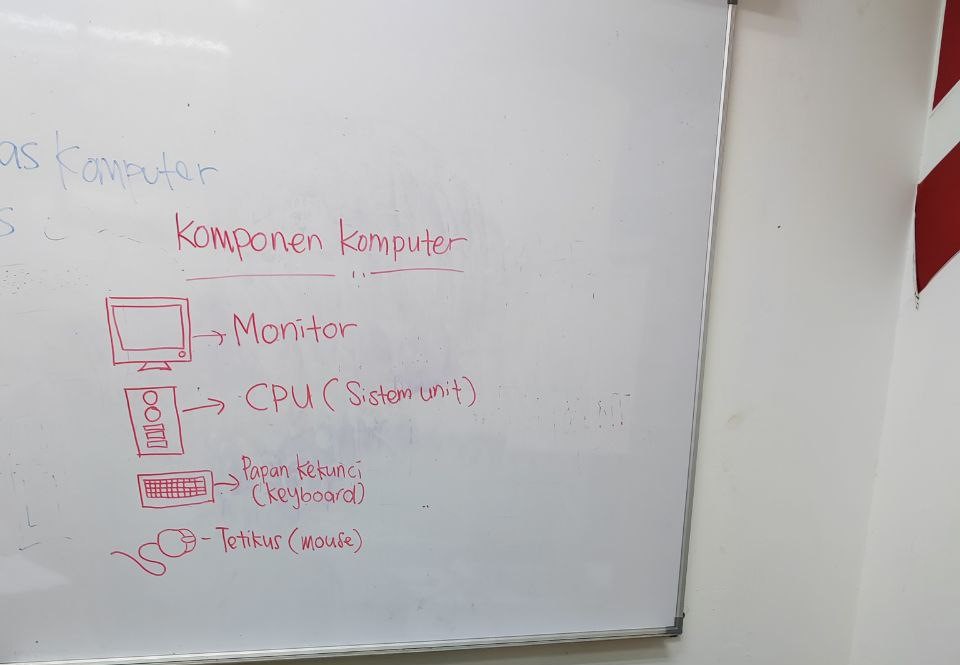 as Komputer
Komponen Komputer
Monitor
CPU (Sistem unit)
Papan kekunci
(keyboard)
Tetikus (mouse)